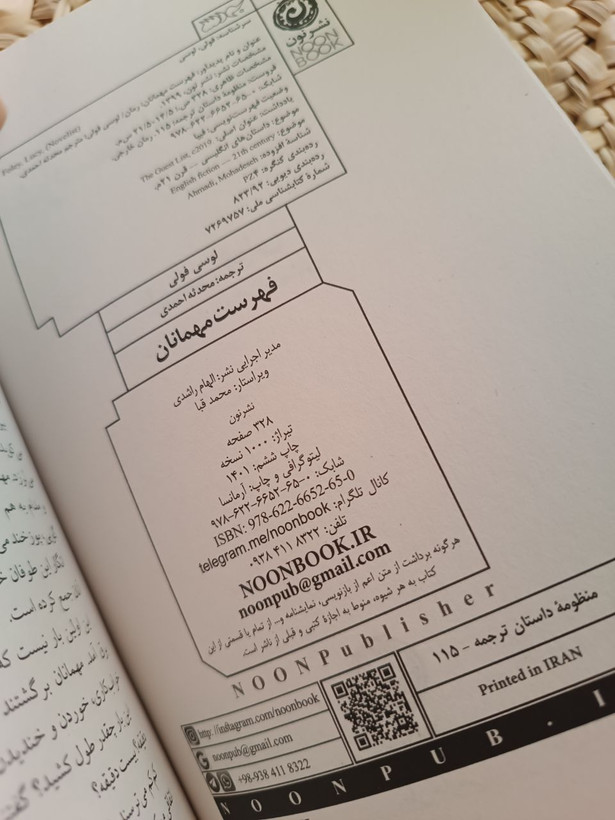 نشرنون
NOON
BOOK
سرشناسه: فولی، لوسی
Foley, Lucy, (Novelist)
عنوان و نام پدیدآور: فهرست مهمانان: رمان/ لوسی فولی؛ مترجم محدثه احمدی.
مشخصات نشر: نشر نون، ۱۳۹۹.
مشخصات ظاهری: ۳۲۸ ص؛ ۱۴/۵×۲۱/۵ س‌م.
فروست: منظومهٔ داستان ترجمه؛ ۱۱۵. رمان خارجی.
شابک: ۰-۶۵-۶۶۵۲-۶۲۲-۹۷۸
وضعیت فهرست‌نویسی: فیپا
یادداشت: عنوان اصلی: The Guest List, c2019.
موضوع: داستان‌های انگلیسی -- قرن ۲۱م.
موضوع: English fiction -- 21th century
شناسه افزوده: Ahmadi, Mohadeseh
رده‌بندی کنگره: PZ۴
رده‌بندی دیویی: ۸۲۳/۹۲
شمارهٔ کتابشناسی ملی: ۷۲۶۹۷۵۷
لوسی فولی
ترجمه: محدثه احمدی
فهرست مهمانان
مدیر اجرایی نشر: الهام راشدی
ویراستار: محمد قبا
نشرنون
۳۲۸ صفحه
تیراژ: ۱۰۰۰ نسخه
چاپ ششم: ۱۴۰۱
لیتوگرافی و چاپ: آرمانسا
شابک: ۰-۶۵-۶۶۵۲-۶۲۲-۹۷۸
ISBN: 978-622-6652-65-0
کانال تلگرام: telegram.me/noonbook
تلفن: ۸۳۲۲ ۴۱۱ ۰۹۳۸
NOONBOOK.IR
noonpub@gmail.com
هرگونه برداشت از متن اعم از بازنویسی، نمایشنامه و... از تمام یا قسمتی از این
کتاب به هر شیوه، منوط به اجازهٔ کتبی و قبلی از ناشر است.
NOONPublisher
http://instagram.com/noonbook
noonpub@gmail.com
+98-938 411 8322
منظومهٔ داستان ترجمه - ۱۱۵
Printed in IRAN
NOONPUB.I